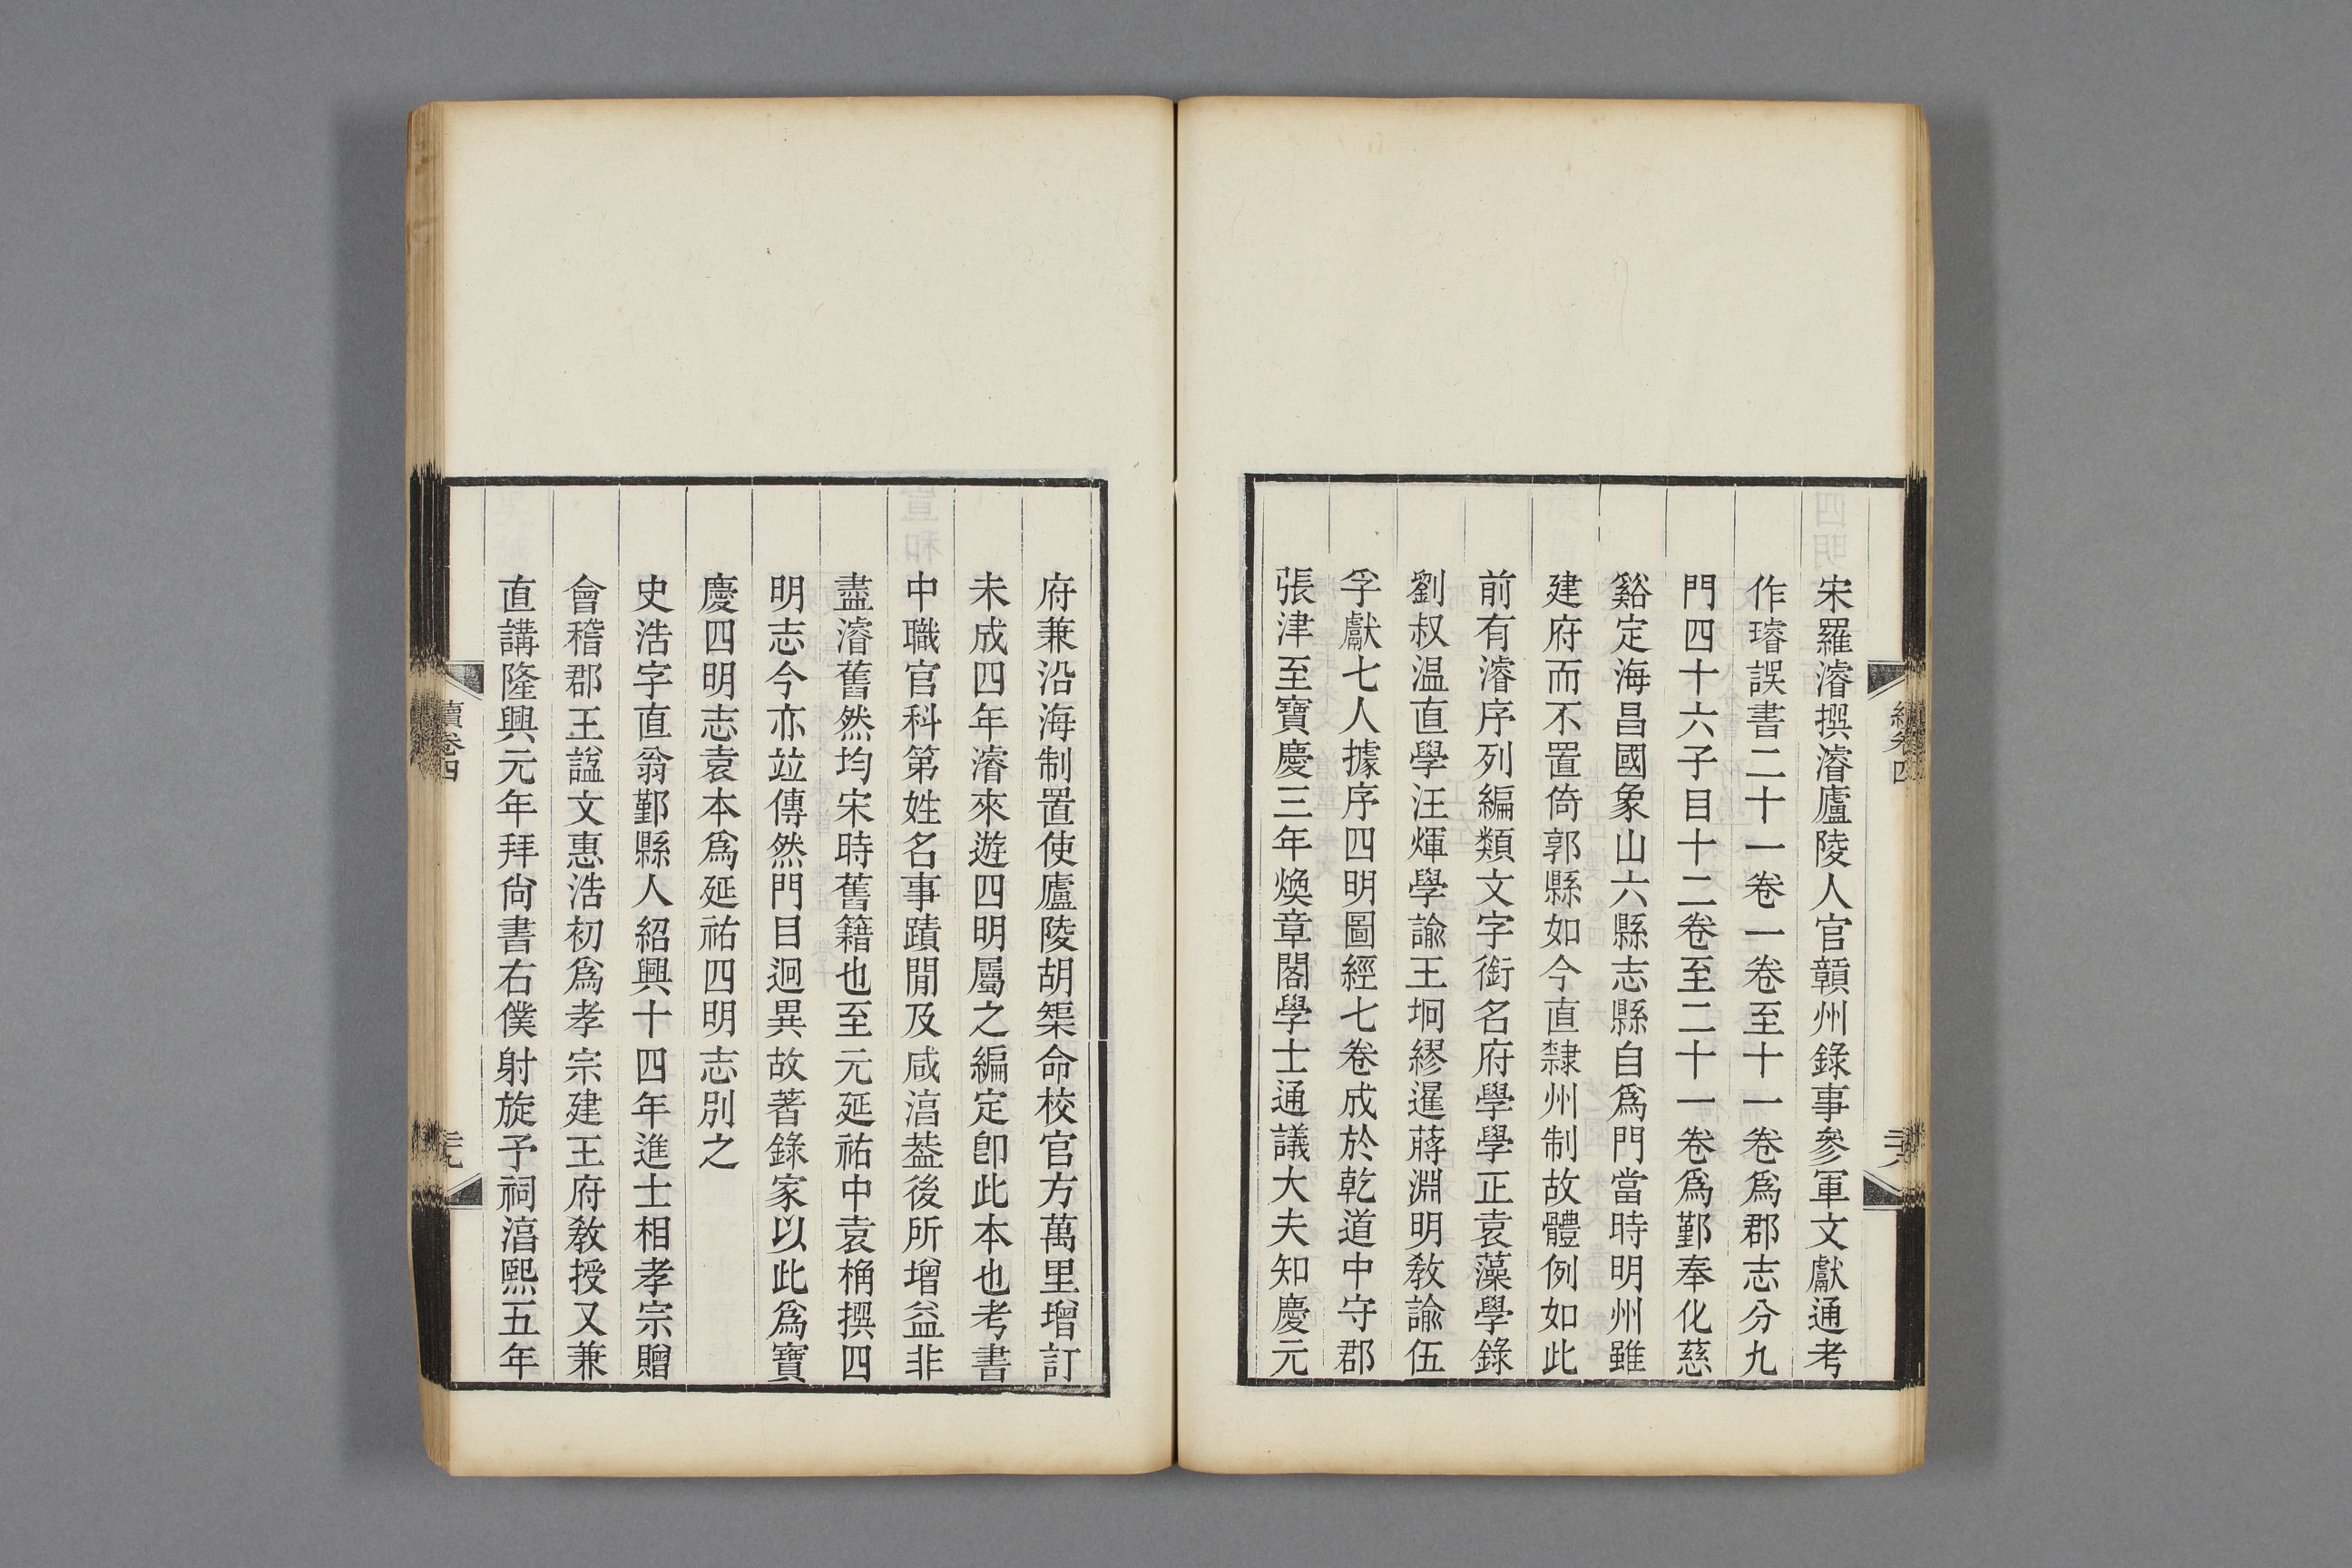 宋羅濬撰濬廬陵人官贛州錄事參軍文獻通考
作璿誤書二十一卷一卷至十一卷爲郡志分九
門四十六子目十二卷至二十一卷爲鄞奉化慈
谿定海昌國象山六縣志縣自爲門當時明州雖
建府而不置倚郭縣如今直隸州制故體例如此
前有濬序列編類文字銜名府學學正袁藻學錄
劉叔温直學汪煇學諭王坰繆暹蔣淵明敎諭伍
孚獻七人據序四明圖經七卷成於乾道中守郡
張津至寶慶三年煥章閣學士通議大夫知慶元
府兼沿海制置使廬陵胡榘命校官方萬里增訂
未成四年濬來遊四明屬之編定卽此本也考書
中職官科第姓名事蹟閒及咸湻葢後所增益非
盡濬舊然均宋時舊籍也至元延祐中袁桷撰四
明志今亦竝傳然門目迥異故著錄家以此爲寶
慶四明志袁本爲延祐四明志別之
史浩字直翁鄞縣人紹興十四年進士相孝宗贈
會稽郡王諡文惠浩初爲孝宗建王府敎授又兼
直講隆興元年拜尙書右僕射旋予祠湻熙五年
續卷四